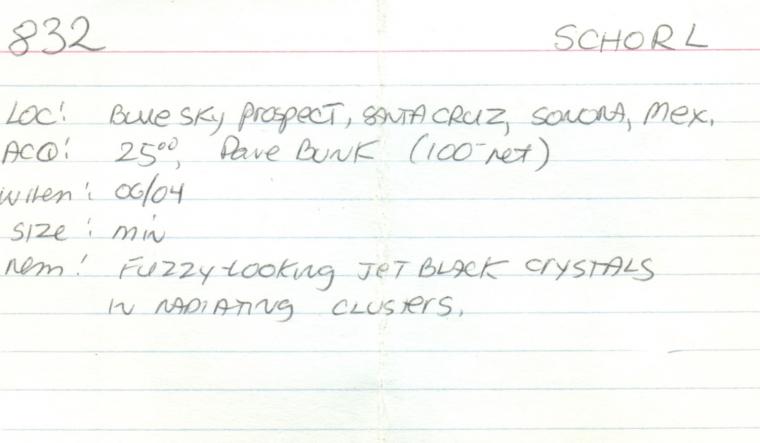 832 SCHORL
LOC: Blue Sky Prospect, SANTA CRUZ, SONORA, Mex.
ACQ: 25⁰⁰, Dave BUNK (100- ret)
WHEN: 06/04
SIZE: min
Rem: FUZZY-LOOKING JET BLACK CRYSTALS
IN RADIATING CLUSTERS.